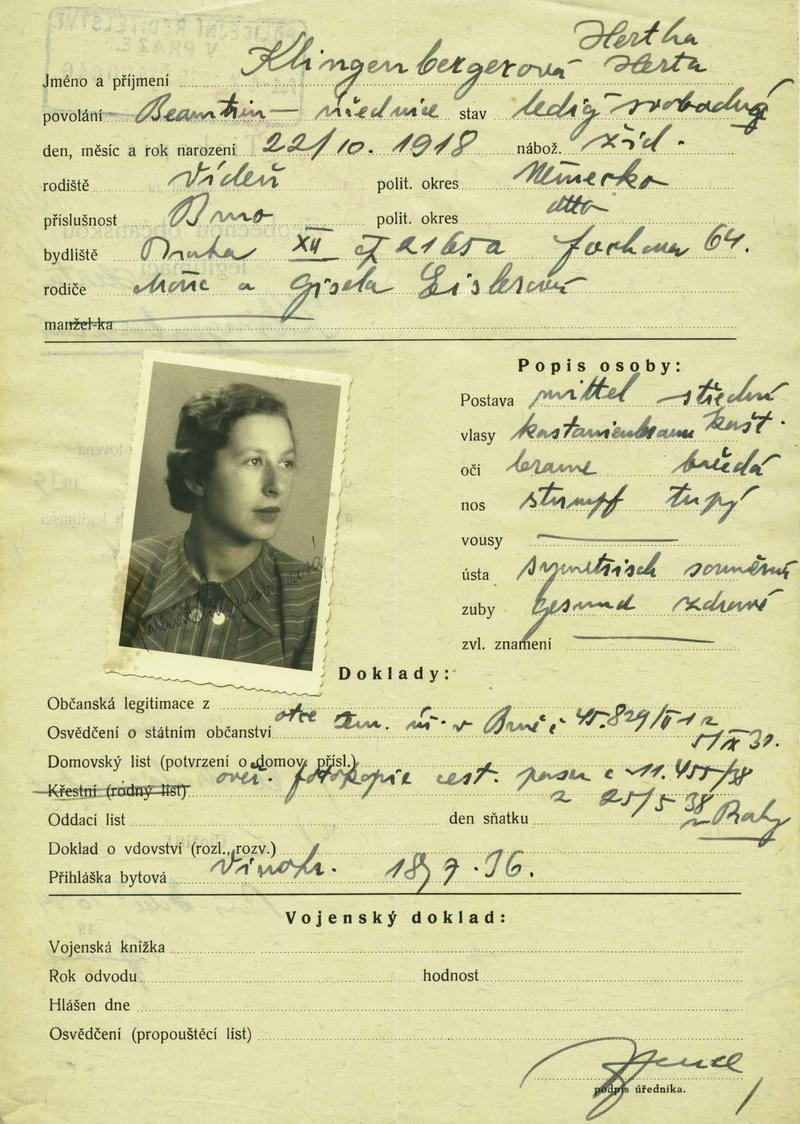 Hertha
Jméno a příjmení Klingenbergerová Herta
povolání Beamtin – úřednice stav ledig svobodná
den, měsíc a rok narození 22/10. 1918 nábož. žid.
rodiště Vídeň polit. okres Německo
příslušnost Brno polit. okres dtto
bydliště Praha XII čp 2165a Fochova 64.
rodiče a Gisela Eislerová
manžel-ka
Popis osoby:
Postava mittel střední
vlasy kastanienbraun kašt.
oči braune hnědá
nos stumpf tupý
vousy
ústa symetrisch souměrná
zuby gesund zdravé
zvl. znamení
Doklady:
Občanská legitimace z
Osvědčení o státním občanství otce zem. úř. v Brně č 45.829/II-12
5/IX 31.
Domovský list (potvrzení o domov. přísl.)
Křestní (rodný list) ověř. fotokopie cest. pasu č 11.455/38
z 25/5 38
Oddací list den sňatku z Prahy
Doklad o vdovství (rozl., rozv.)
Přihláška bytová Vinohr. 18/7.36.
Vojenský doklad:
Vojenská knížka
Rok odvodu hodnost
Hlášen dne
Osvědčení (propouštěcí list)
podpis úředníka.